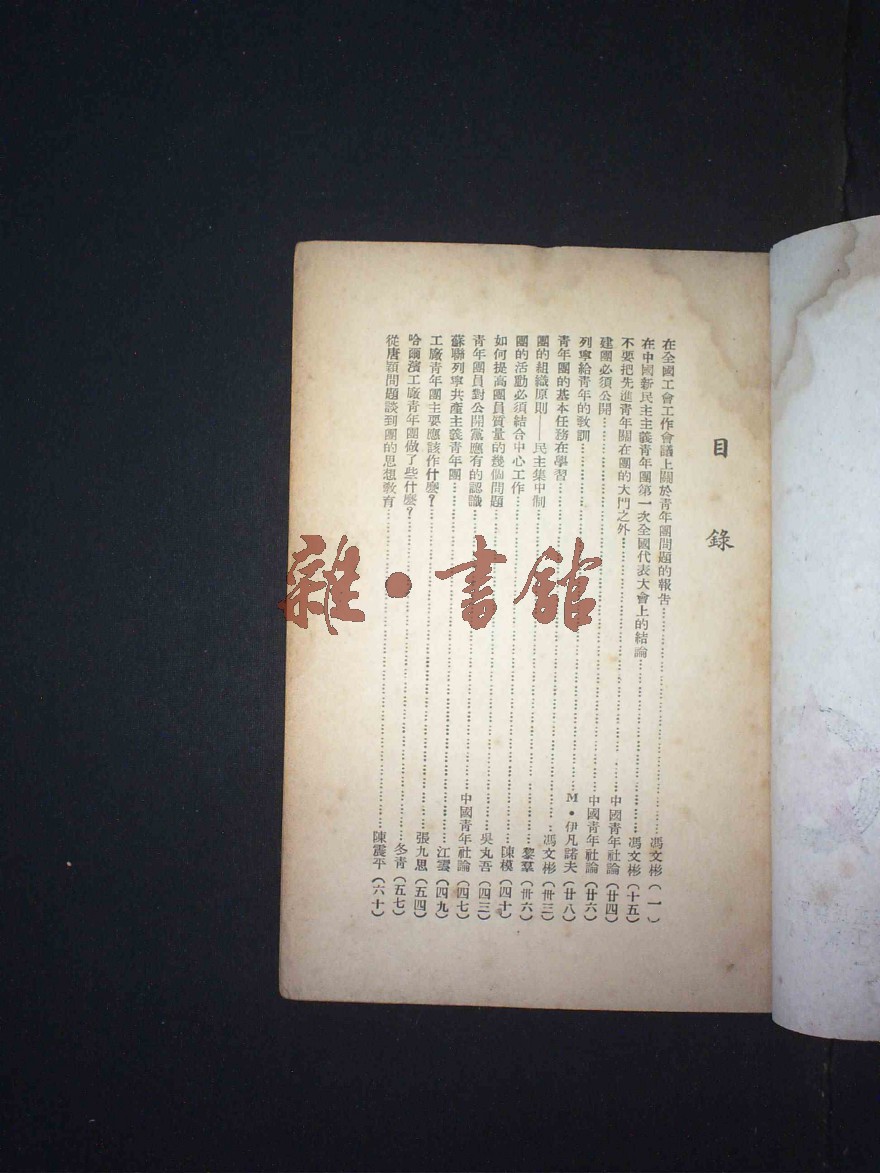 目錄
在全國工會工作會議上關於青年團問題的報告……馮文彬(一)
在中國新民主主義青年團第一次全國代表大會上的結論……馮文彬(十五)
不要把先進青年關在團的大門之外……中國青年社論(廿四)
建團必須公開……中國青年社論(廿六)
列寧給青年的教訓……M·伊凡諾夫(廿八)
青年團的基本任務在學習……馮文彬(卅三)
團的組織原則——民主集中制……黎羣(卅六)
團的活動必須結合中心工作……陳模(四十)
如何提高團員質量的幾個問題……吳丸吾(四三)
青年團員對公開黨應有的認識……中國青年社論(四七)
蘇聯列寧共產主義青年團……江雲(四九)
工廠青年團主要應該作什麼?……張九思(五四)
哈爾濱工廠青年團做了些什麼?……冬青(五七)
從唐穎問題談到團的思想教育……陳震平(六十)
雜·書館